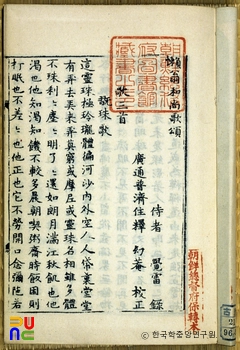 懶翁和尚歌頌
侍者 覺雷 錄
廣通普濟住釋 幻菴 校正
歌三首
翫珠歌
這靈珠極玲瓏體徧河沙內外空人人帒裏堂堂
有弄去弄來弄莫窮或摩尼或靈珠名相雖多體
不殊刹刹塵塵明了了還如朗月滿江秋飢也他
渴也他知渴知飢不較多晨朝喫粥齋時飯困則
打眠也不差差也他正也他不勞開口念彌陀若
朝鮮總督府圖書館藏書之印
朝鮮總督府保轉本
96
©한국학중앙연구원